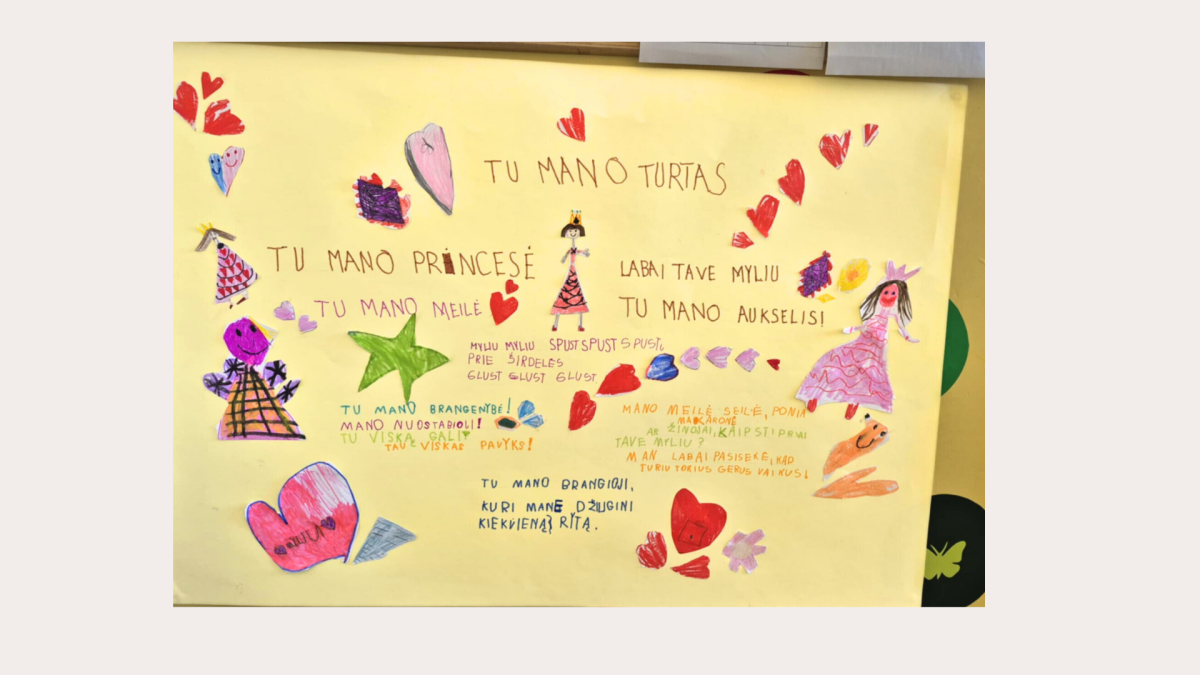 TU MANO TURTAS
TU MANO PRINCESĖ
LABAI TAVE MYLIU
TU MANO MEILĖ
TU MANO AUKSELIS!
MYLIU MYLIU SPUST SPUST SPUST
PRIE ŠIRDELĖS
GLUST GLUST GLUST
TU MANO BRANGENYBĖ!
MANO NUOSTABIOJI!
TU VISKĄ GALI
TAU VISKAS PAVYKS!
MANO MEILĖ SEILĖ, PONIA
MAKARONĖ
AR ŽINOJAI, KAIP STIPRIAI
TAVE MYLIU?
MAN LABAI PASISEKĖ, KAD
TURIU TOKIUS GERUS VAIKUS!
TU MANO BRANGIOJI,
KURI MANE DŽIUGINI
KIEKVIENĄ RYTĄ.